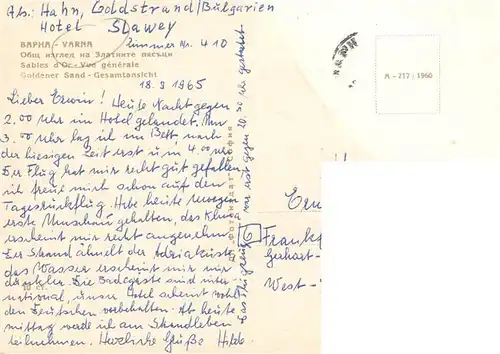 Abs.: Hahn, Goldstrand/Bulgarien
Hotel Slawey
Zimmer Nr. 410
ВАРНА - VARNA
Общ изглед на Златните пясъци
Sables d'Or - Vue générale
Goldener Sand - Gesamtansicht
18.9.1965
Lieber Erwin! Heute Nacht gegen
2.00 Uhr im Hotel gelandet. Um
3.00 Uhr lag ich im Bett, nach
der hiesigen Zeit erst um 4.00 Uhr.
Der Flug hat mir recht gut gefallen
ich freue mich schon auf den
Tagesrückflug. Habe heute morgen
erste Umschau gehalten, das Klima
erscheint mir recht angenehm.
Der Strand ähnelt der Adriaküste,
das Wasser erscheint mir nur
dunkler. Die Badegäste sind inter-
national, unser Hotel scheint wohl
den Deutschen vorbehalten. Ab heute
mittag werde ich am Strandleben
teilnehmen. Herzliche Grüße Hilde.
Das Flugzeug ist erst gegen 20.30 Uhr gestartet
ФОТОИЗДАТ СОФИЯ
10 ст.
А - 217 / 1960
Erw
6 Frankf
Gerhart-
West-